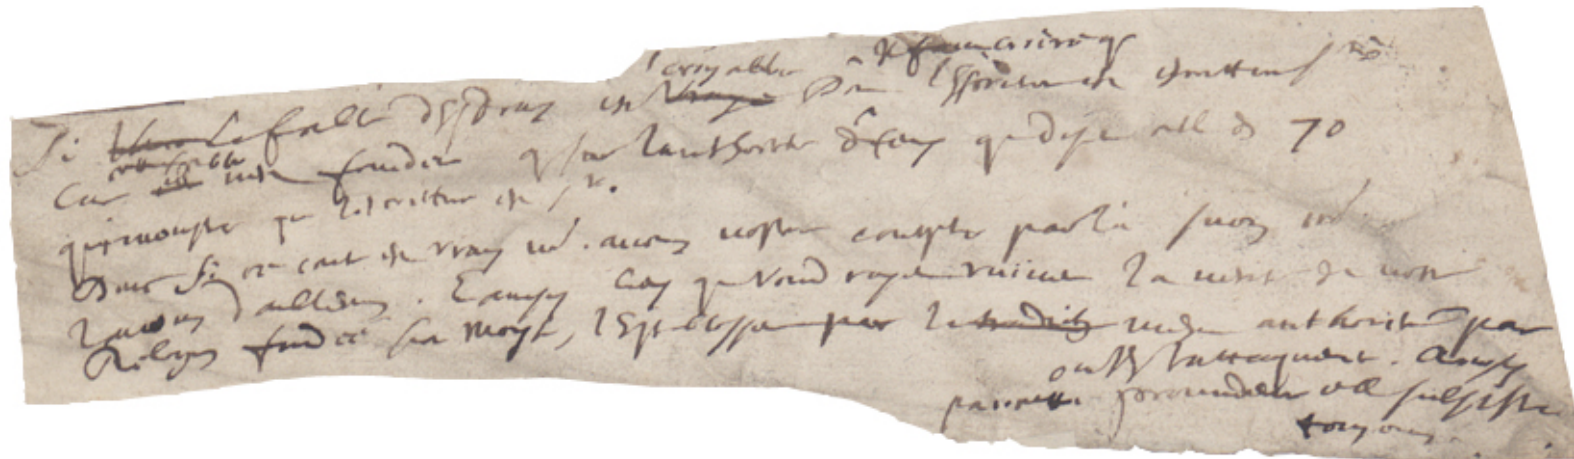 croyable il faut croire q
Si la fable d'Esdras est vraye donc l'Escriture est escritture Ste
cette fable
Car elle n'est fondée q sur l'authorité de ceux qui disent celle des 70
qui monstre que l'escritture est Ste.
Donc si ce conte est vray ns. avons nostre compte par là sinon ns
l'avons d'ailleurs. Et ainsy ceux qui voudroyent ruiner la verité de nostre
Religion fondée sur Moyse, l'establissent par la mesme authorité par
où ils l'attaquent. Ainsy
par cette providence elle subsiste
toujours.